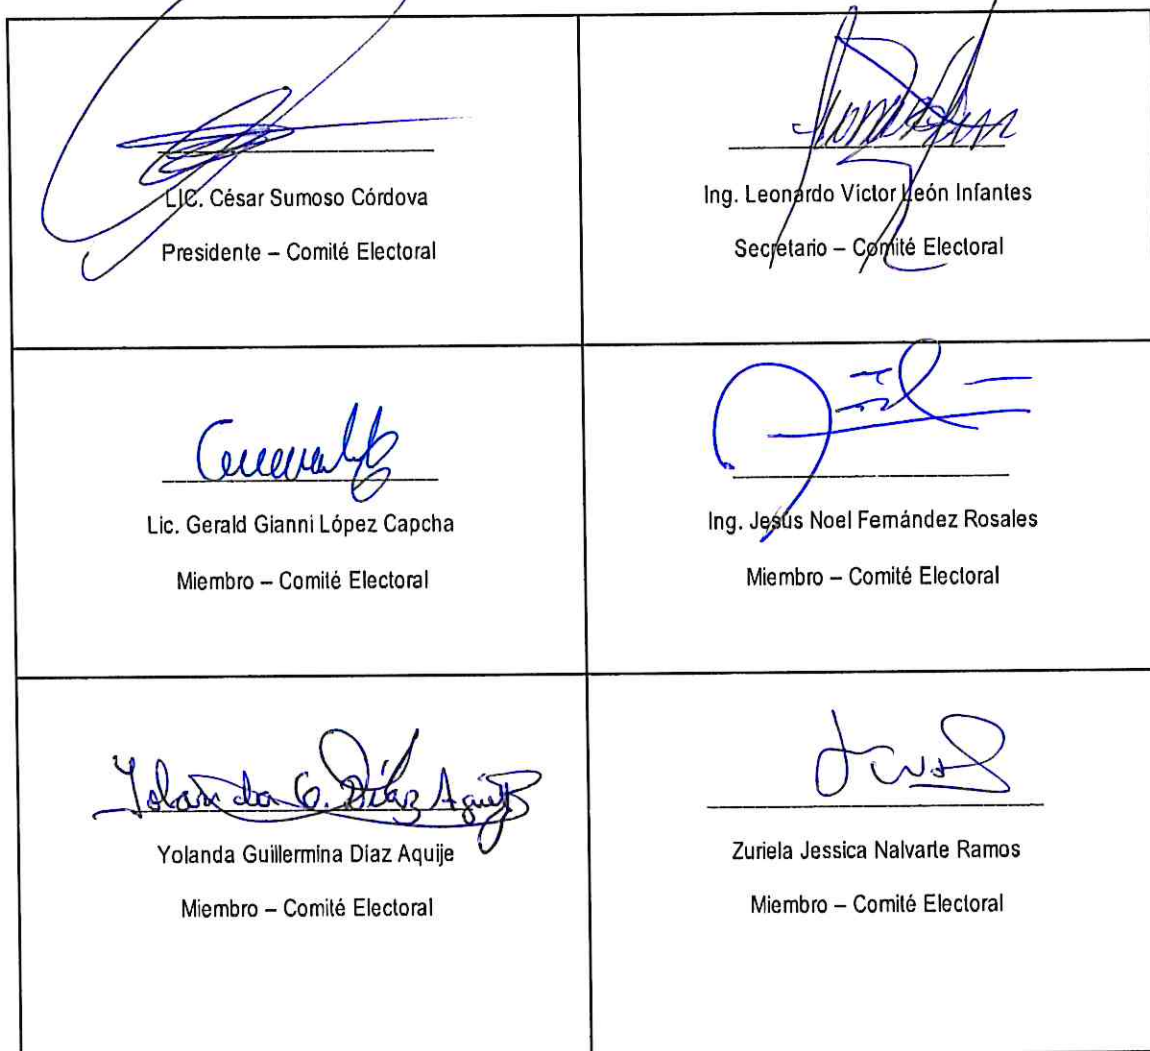 LIC. César Sumoso Córdova
Presidente – Comité Electoral
Ing. Leonardo Víctor León Infantes
Secretario – Comité Electoral
Lic. Gerald Gianni López Capcha
Miembro – Comité Electoral
Ing. Jesús Noel Fernández Rosales
Miembro – Comité Electoral
Yolanda G. Díaz Aquije
Yolanda Guillermina Díaz Aquije
Miembro – Comité Electoral
Zuriela Jessica Nalvarte Ramos
Miembro – Comité Electoral